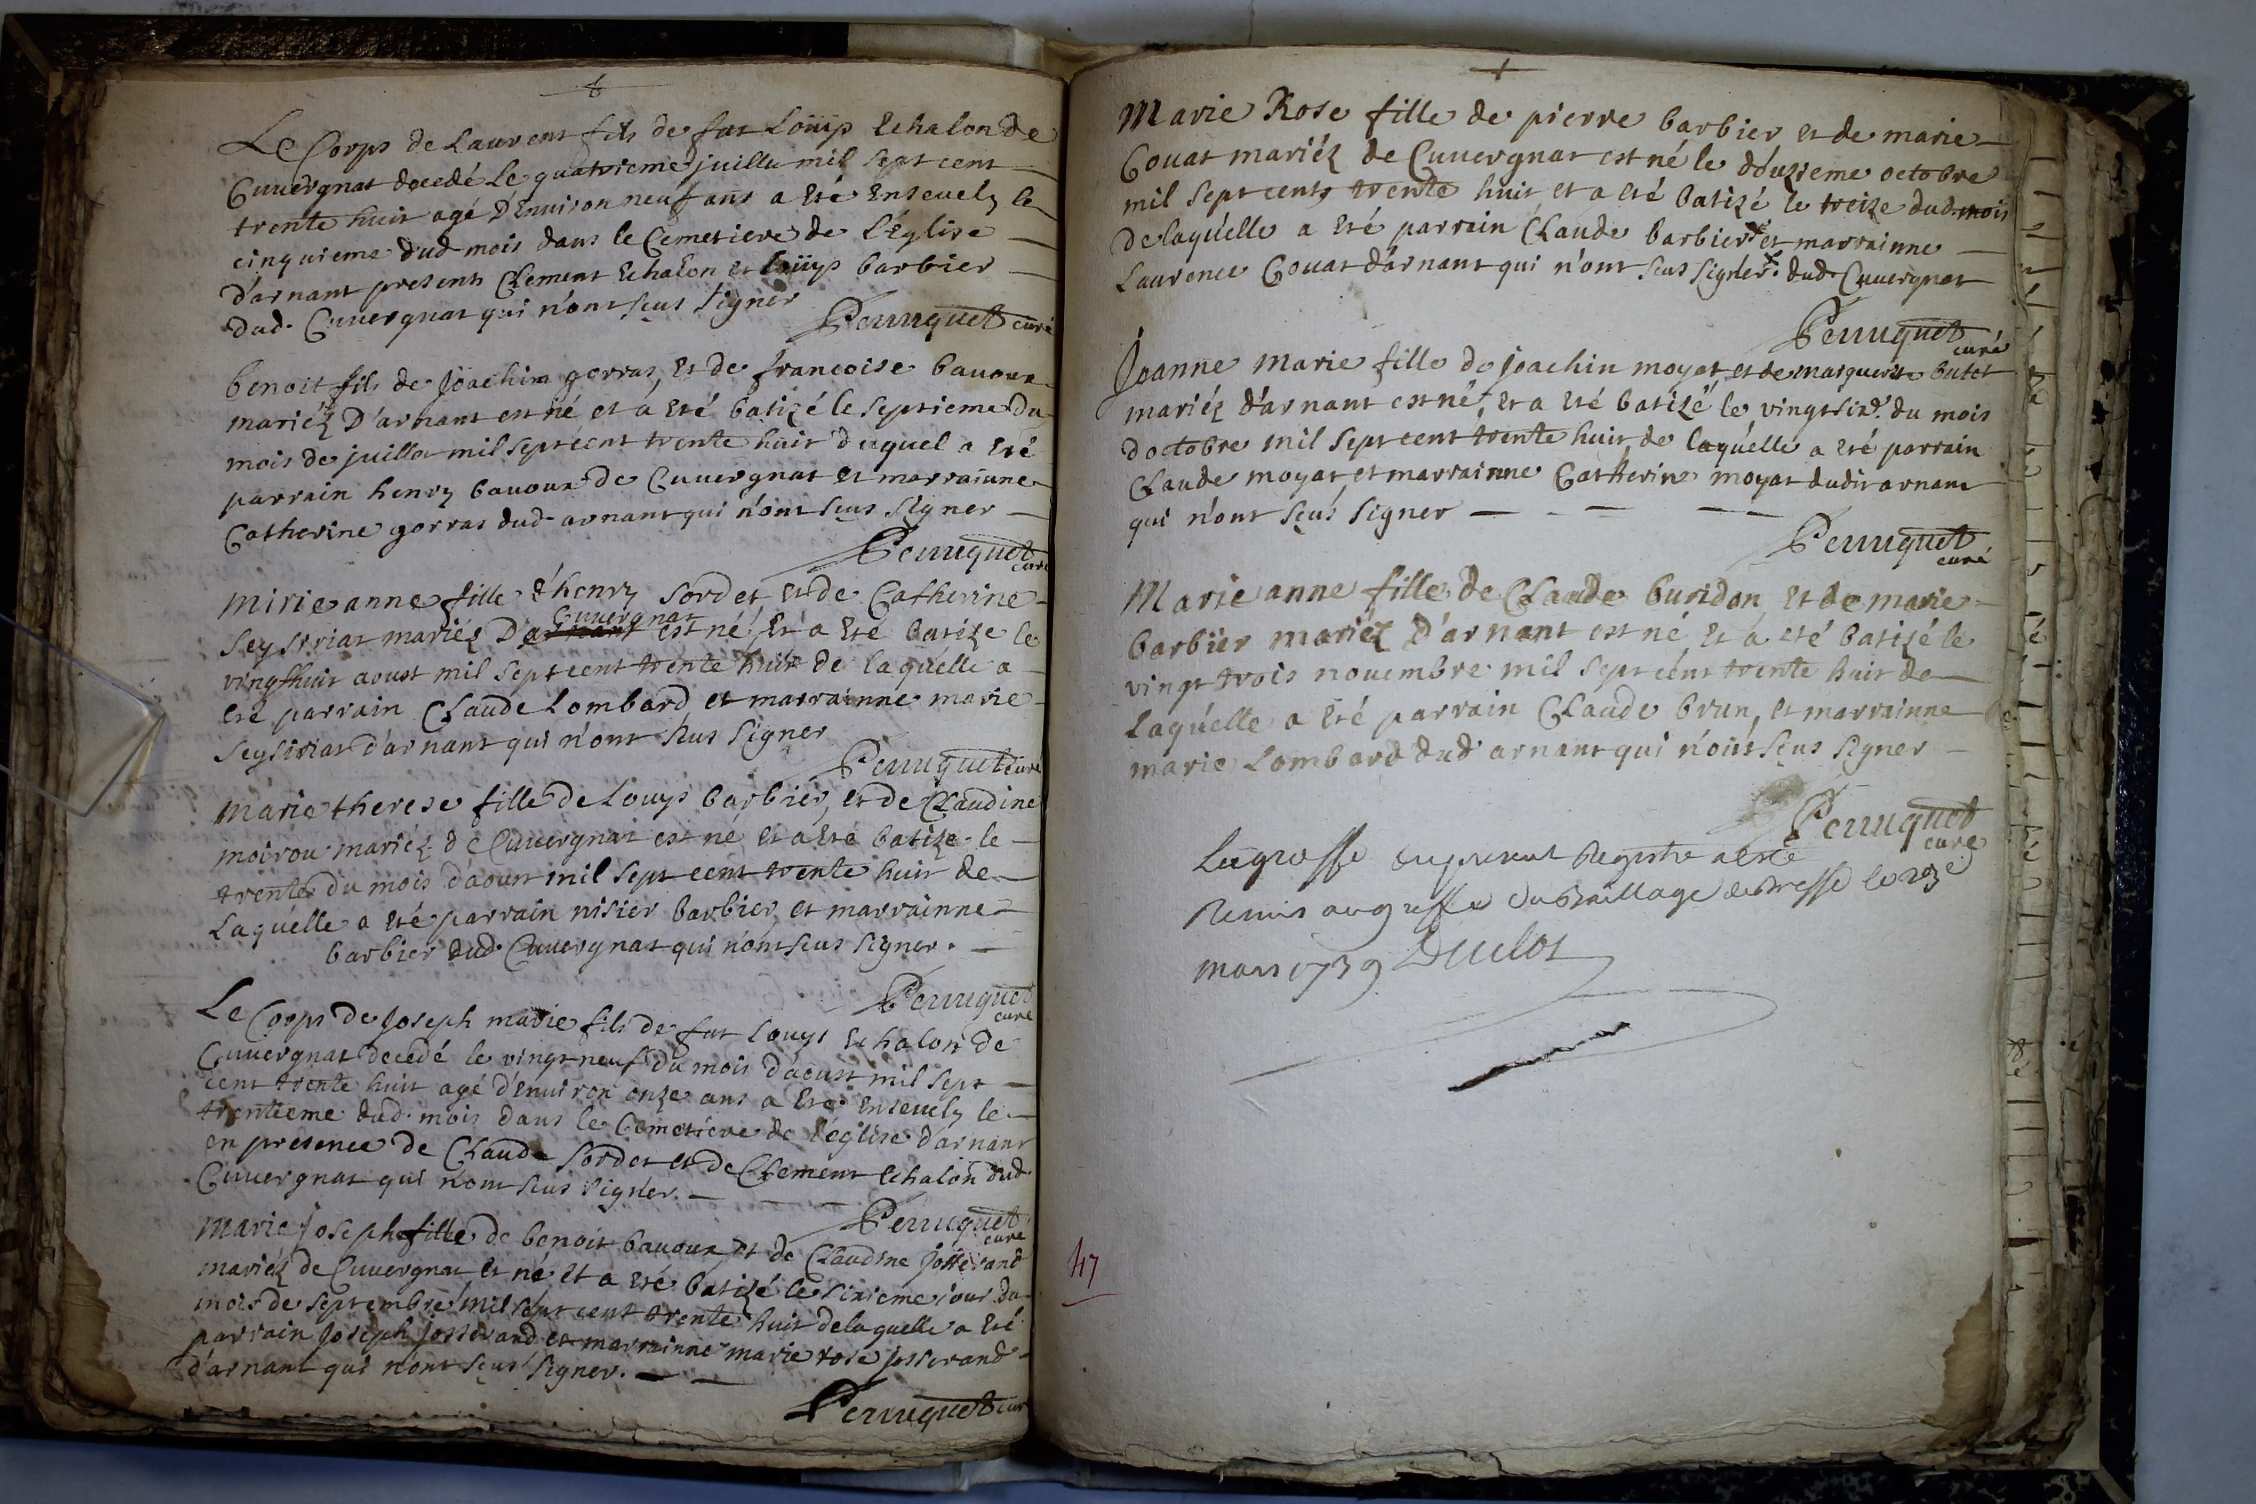 Le Corps de Laurent fils de fut Loüijs Echalon de
Cuuergnat decedé le quatrieme juillet mil sept cent
trente huit agé d'Enuiron neuf ans a Eté Enseuely le
cinquieme dud. mois dans le Cemetiere de L'Eglise
d'arnant presents Clement Echalon et Loüijs barbier
dud. Cuuergnat qui n'ont sçus signer
Perruquet curé
benoit fils de Joachim gorras, Et de francoise bauoux
mariéz D'arnant est né et á Eté batizé le septieme du
mois de juillet mil sept cent trente huit duquel a Eté
parrain henry bauoux de Cuuergnat et marrainne
Catherine gorras dud. arnant qui n'ont sçus signer
Perruquet curé
Mirie anne fille d'henry Sordet et de Catherine
Cuuergnat
Seysiriat mariéz D'arnant est né Et a Eté batize le
vingthuit aoust mil sept cent trente huit de laquelle a
Eté parrain Claude Lombard et marrainne marie
Seysiriat d'arnant qui n'ont sçus signer
Perruquet curé
Marie therese fille de Louys barbier, et de Claudine
moirou mariéz de Cuuergnat est né et a Eté batize le
trente du mois d'aoust mil sept cent trente huit de
Laquelle a Eté parrain nisier barbier et marrainne
barbier dud. Cuuergnat qui n'ont sçus signer.
Perruquet
curé
Le Corps de Joseph marie fils de fut Louys Echalon de
Cuuergnat decedé le vingt neuf du mois d'aoust mil sept
cent trente huit agé d'Enuiron onze ans a Eté Enseuely le
trentieme dud. mois dans le Cemetiere de l'eglise d'arnant
en presence de Claude Sordet et de Clement Echalon dud.
Cuuergnat qui n'ont sçus signer.
Perruquet
curé
Marie Joseph fille de benoit bauoux et de Claudine Josserand
mariéz de Cuuergnat Et né Et a Eté batizé le sixieme jour du
mois de septembre mil sept cent trente huit de laquelle a Eté
parrain Joseph Josserand et marrainne marie rose josserand
d'arnant qui n'ont sçus signer.
Perruquet curé
Marie Rose fille de pierre barbier et de marie
Gouat mariéz de Cuuergnat est né le douzieme octobre
mil sept cents trente huit et a eté batizé le treize dud. mois
de laquelle a Eté parrain Claude barbier et marrainne
Laurence Gouat d'arnant qui n'ont sçus signer. dud. Cuuergnat
Perruquet
curé
Joanne Marie fille de joachin moyat et de marguerite butet
mariéz d'arnant est né, Et a Eté batizé le vingt six.e du mois
doctobre mil sept cent trente huit de laquélle a eté parrain
Claude moyat et marrainne Catherine moyat dudit arnant
qui n'ont sçus signer
Perruquet
curé
Marie anne fille de Claude buridon Et de marie
barbier mariéz D'arnant est né Et a eté batizé le
vingt trois nouembre mil sept cent trente huit de
Laquélle a Eté parrain Claude brun, et marrainne
marie Lombard dud. arnant qui n'ont sçus signer
Perruquet
curé
La grosse du present Registre a esté
Remis au greffe du Bailliage de Bresse le
mars 1739 Duclos
47